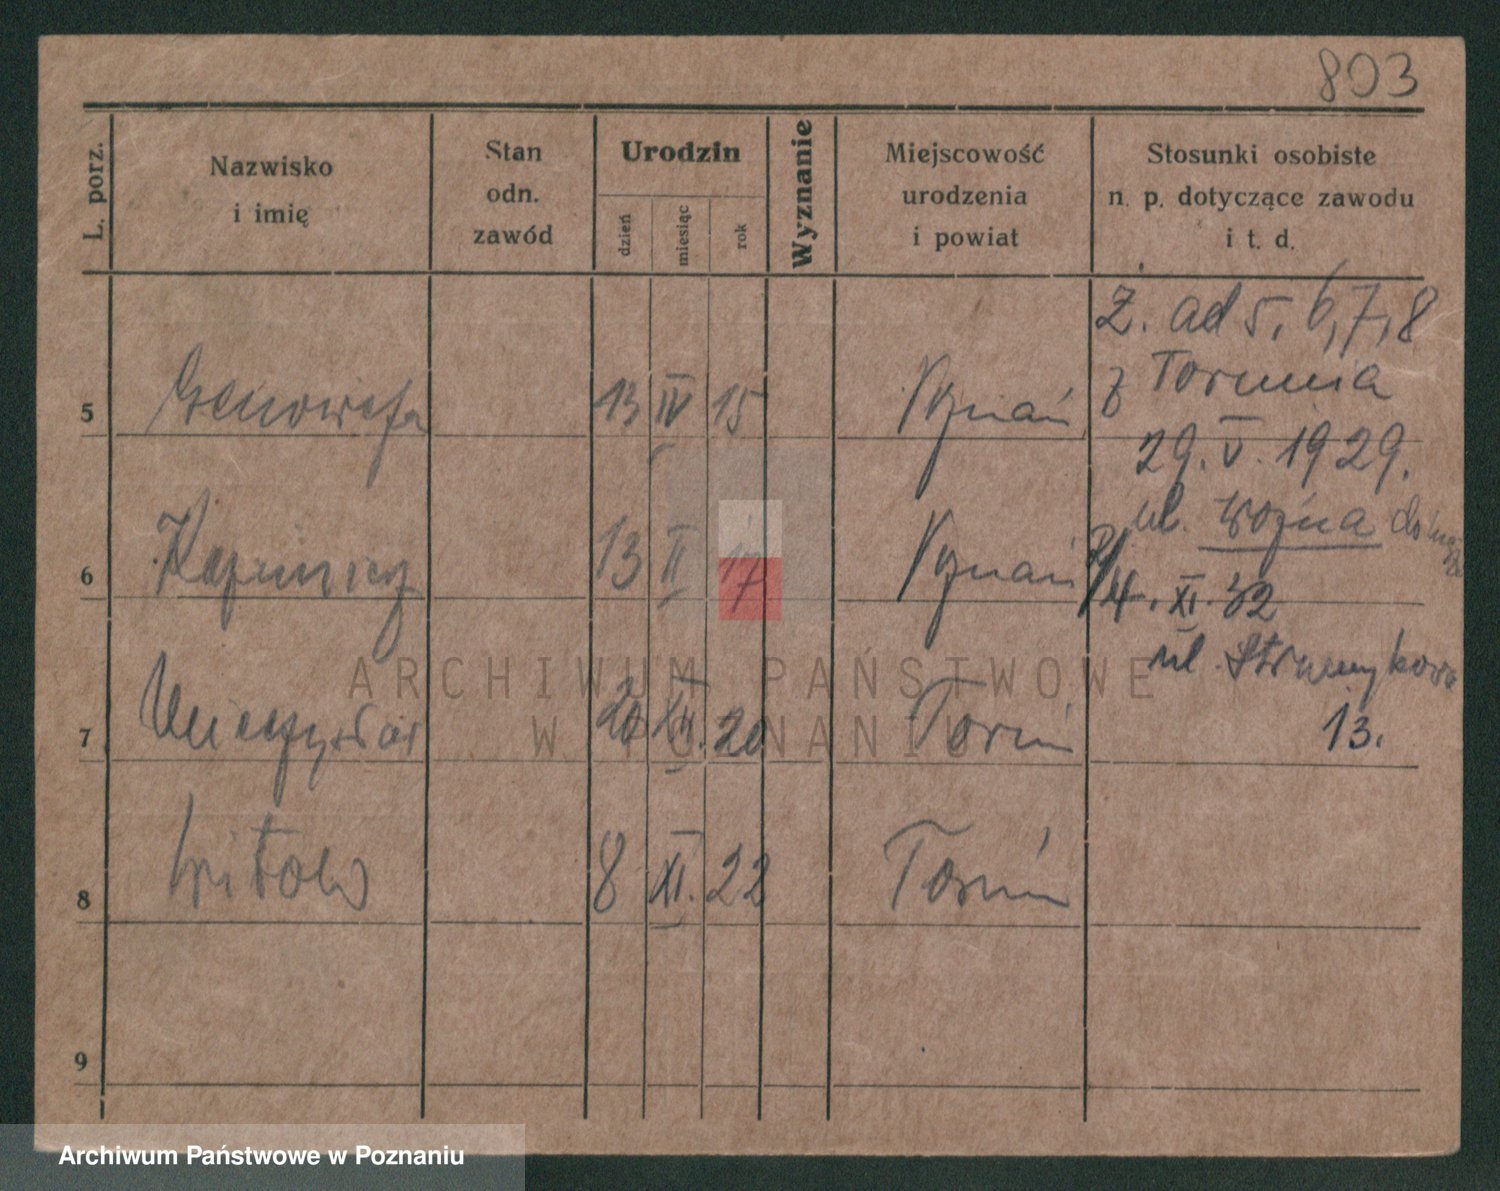 803
L. porz.
Nazwisko
i imię
Stan
odn.
zawód
Urodzin
dzień
miesiąc
rok
Wyznanie
Miejscowość
urodzenia
i powiat
Stosunki osobiste
n. p. dotyczące zawodu
i t. d.
Ż. ad 5, 6, 7, 8
z Torunia
5 Genowefa 13 IV 15 Poznań
29. V. 1929.
ul. Woźna
6 Kazimierz 13 II 17 Poznań
4. XI. 32
ul. Strumykowa
13.
7 Mieczysław 20 XII. 20 Toruń
8 Witold 8 XI. 22 Toruń
9
ARCHIWUM PAŃSTWOWE
W POZNANIU
Archiwum Państwowe w Poznaniu